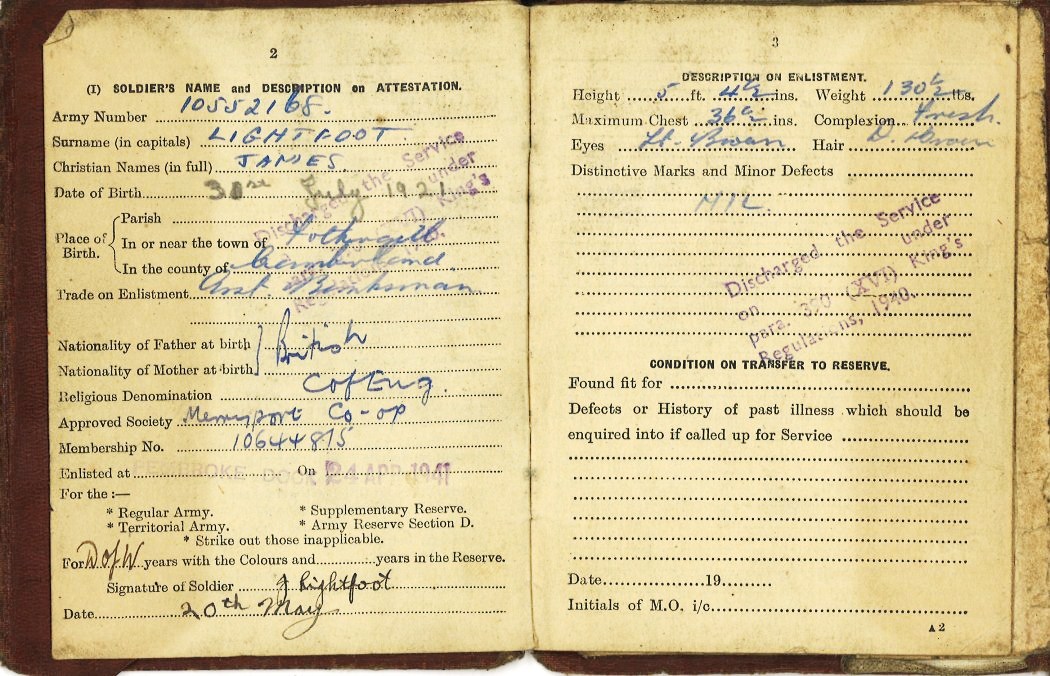 2
(I) SOLDIER'S NAME and DESCRIPTION on ATTESTATION.
Army Number 10552168.
Surname (in capitals) LIGHTFOOT
Christian Names (in full) JAMES
Date of Birth 30 July 1921
Place of Birth.
Parish
In or near the town of
In the county of Cumberland.
Trade on Enlistment Asst. Banksman
Nationality of Father at birth
Nationality of Mother at birth
British
Religious Denomination C of Eng.
Approved Society Co-op
Membership No. 10644815
Enlisted at On 24 APR 1941
For the :—
* Regular Army. * Supplementary Reserve.
* Territorial Army. * Army Reserve Section D.
* Strike out those inapplicable.
For D of W years with the Colours and years in the Reserve.
Signature of Soldier J Lightfoot
Date 20th May
Discharged the Service
under
King's
3
DESCRIPTION ON ENLISTMENT.
Height 5 ft. 4½ ins. Weight 130½ lbs.
Maximum Chest 36½ ins. Complexion Fresh.
Eyes Lt. Brown. Hair D. Brown
Distinctive Marks and Minor Defects
NIL.
Discharged the Service
on under
para. 390 (XVI) King's
Regulations, 1940.
CONDITION ON TRANSFER TO RESERVE.
Found fit for
Defects or History of past illness which should be
enquired into if called up for Service
Date 19
Initials of M.O. i/c
A 2